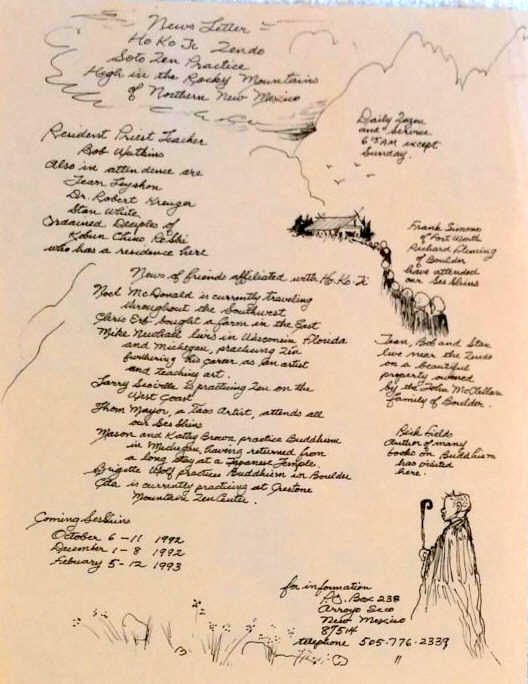 News Letter
Ho Ko Ji Zendo
Soto Zen Practice
High in the Rocky Mountains
of Northern New Mexico
Daily Zazen
and Service
6 AM except
Sunday.
Resident Priest Teacher
Bob Watkins
Also in attendence are
Jean Leyshon
Dr. Robert Kreuger
Stan White
Ordained Deciples of
Kobun Chino Roshi
who has a residence here
Frank Simons
of Fort Worth
Richard Fleming
of Boulder
have attended
our Sesshins
News of friends affiliated with Ho Ko Ji
Noel McDonald is currently traveling
throughout the Southwest
Chris Erb bought a farm in the East
Mike lives in Wisconsin, Florida
and Michegan, practicing Zen
furthering his career as an artist
and teaching art.
Larry is practicing Zen on the
West Coast
Thom Mayor, a Taos Artist, attends all
our Sesshins
Mason and Kathy Brown practice Buddhism
in Michegan, having returned from
a long stay at a Japanese Temple.
Brigette Wolf practices Buddhism in Boulder
is currently practicing at Crestone
Mountain Zen Center.
Jean, Bob and Stan
live near the Zendo
on a beautiful
property owned
by the John McClellan
family of Boulder.
Rick Fields
Author of many
books on Buddhism
has visited
here.
Coming Sesshins
October 6-11 1992
December 1-8 1992
Febuary 5-12 1993
for information
P.O. Box 238
Arroyo Seco
New Mexico
87514
telephone 505-776-2339